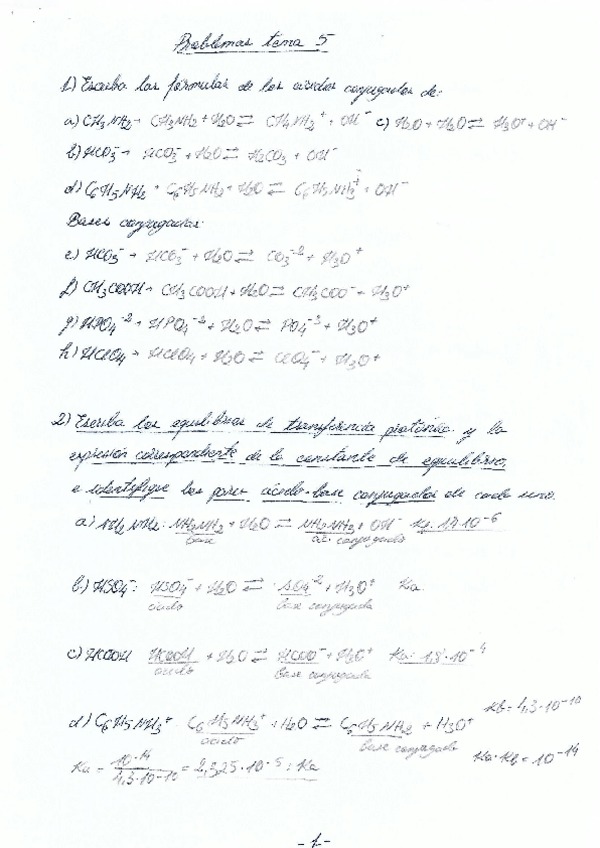 Problemas tema 5
1) Escriba las fórmulas de los ácidos conjugados de:
a) CH3NH2 → CH3NH2 + H2O ⇌ CH3NH3+ + OH- c) H2O + H2O ⇌ H3O+ + OH-
b) HCO3- → HCO3- + H2O ⇌ H2CO3 + OH-
d) C6H5NH2 → C6H5NH2 + H2O ⇌ C6H5NH3+ + OH-
Bases conjugadas:
e) HCO3- → HCO3- + H2O ⇌ CO3-2 + H3O+
f) CH3COOH → CH3COOH + H2O ⇌ CH3COO- + H3O+
g) HPO4-2 → HPO4-2 + H2O ⇌ PO4-3 + H3O+
h) HClO4 → HClO4 + H2O ⇌ ClO4- + H3O+
2) Escriba los equilibrios de transferencia protónica y la
expresión correspondiente de la constante de equilibrio,
e identifique los pares ácido-base conjugados en cada uno.
a) NH2NH2: NH2NH2 + H2O ⇌ + OH-
base ác. conjugado
b) HSO4-: HSO4- + H2O ⇌ SO4-2 + H3O+ Ka
ácido base conjugada
c) HCOOH HCOOH + H2O ⇌ HCOO- + H3O+ Ka: 1,8·10-4
ácido base conjugada
Kb = 4,3·10-10
d) C6H5NH3+ C6H5NH3+ + H2O ⇌ C6H5NH2 + H3O+
ácido base conjugada Ka·Kb = 10-14
Ka = 10-14 / 4,3·10-10 = 2,325·10-5 : Ka
-1-